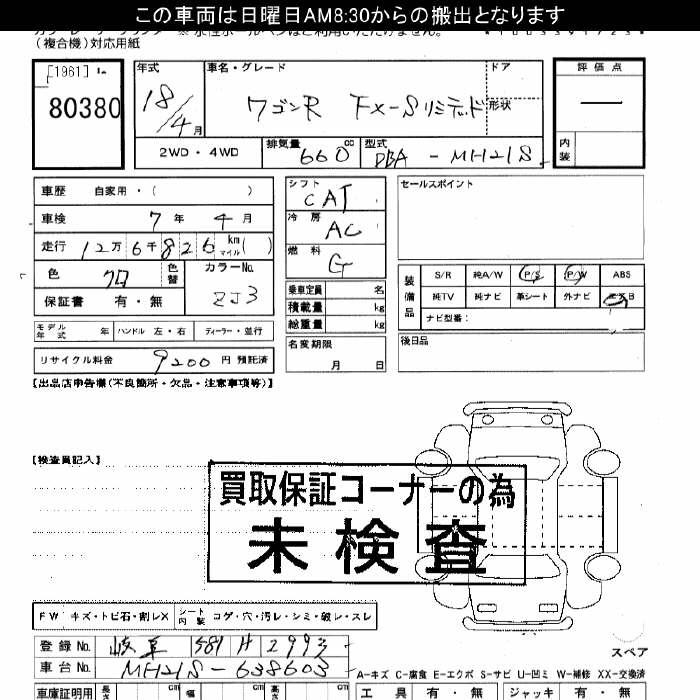 この車両は日曜日AM8:30からの搬出となります
(複合機)対応用紙
[1961]
80380
年式 車名・グレード ドア
18/4月 ワゴンR FX-Sリミテッド 形状
評価点
—
内装
2WD・4WD 排気量 660 cc 型式 DBA-MH21S
車歴 自家用・( )
車検 7年 4月
走行 12万6千826 km マイル ( )
色 クロ 色替 カラーNo.
保証書 有・無 ZJ3
シフト CAT
冷房 AC
燃料 G
乗車定員 名
積載量 kg
総重量 kg
名変期限
月 日
セールスポイント
装備品
S/R 純A/W P/S P/W ABS
純TV 純ナビ 革シート 外ナビ
ナビ型番:
後日品
モデル年式 年 ハンドル 左・右 ディーラー・並行
リサイクル料金 9200 円 預託済
【出品店申告欄(不良箇所・欠品・注意事項等)】
【検査員記入】
買取保証コーナーの為
未検査
FW キズ・トビ石・割レX シート内装 コゲ・穴・汚レ・シミ・破レ・スレ
登録No. 岐阜 581 H 2993
車台No. MH21S-638603
スペア
A-キズ C-腐食 E-エクボ S-サビ U-凹ミ W-補修 XX-交換済
車庫証明用 長さ cm 幅 cm 高さ cm
工具 有・無 ジャッキ 有・無